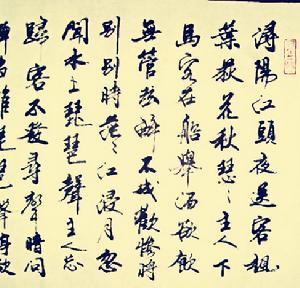 潯陽江頭夜送客楓
葉荻花秋瑟々主人下
馬客在船舉酒欲飲
無管弦醉不成歡慘將
別別時茫々江浸月忽
聞水上琵琶聲主人忘
歸客不發尋聲暗問
彈者誰琵琶聲停欲